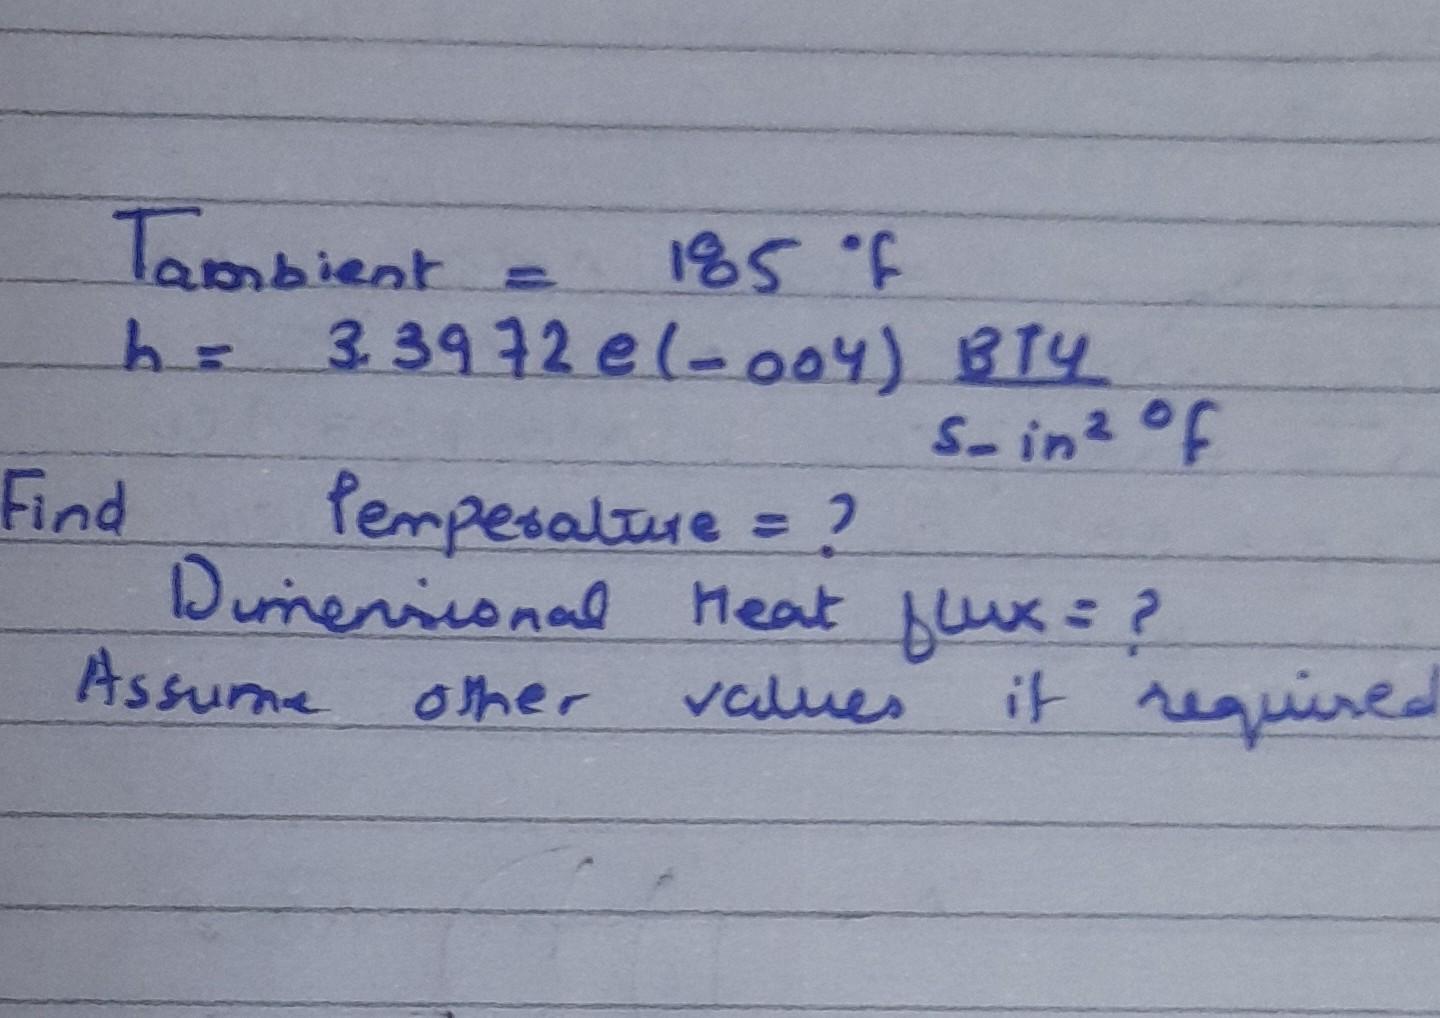 Tambient = 185 °f
h = 3.3972 e(-004) BTU
s- in² °f
Find Temperature = ?
Dimensional Heat flux = ?
Assume other values if required